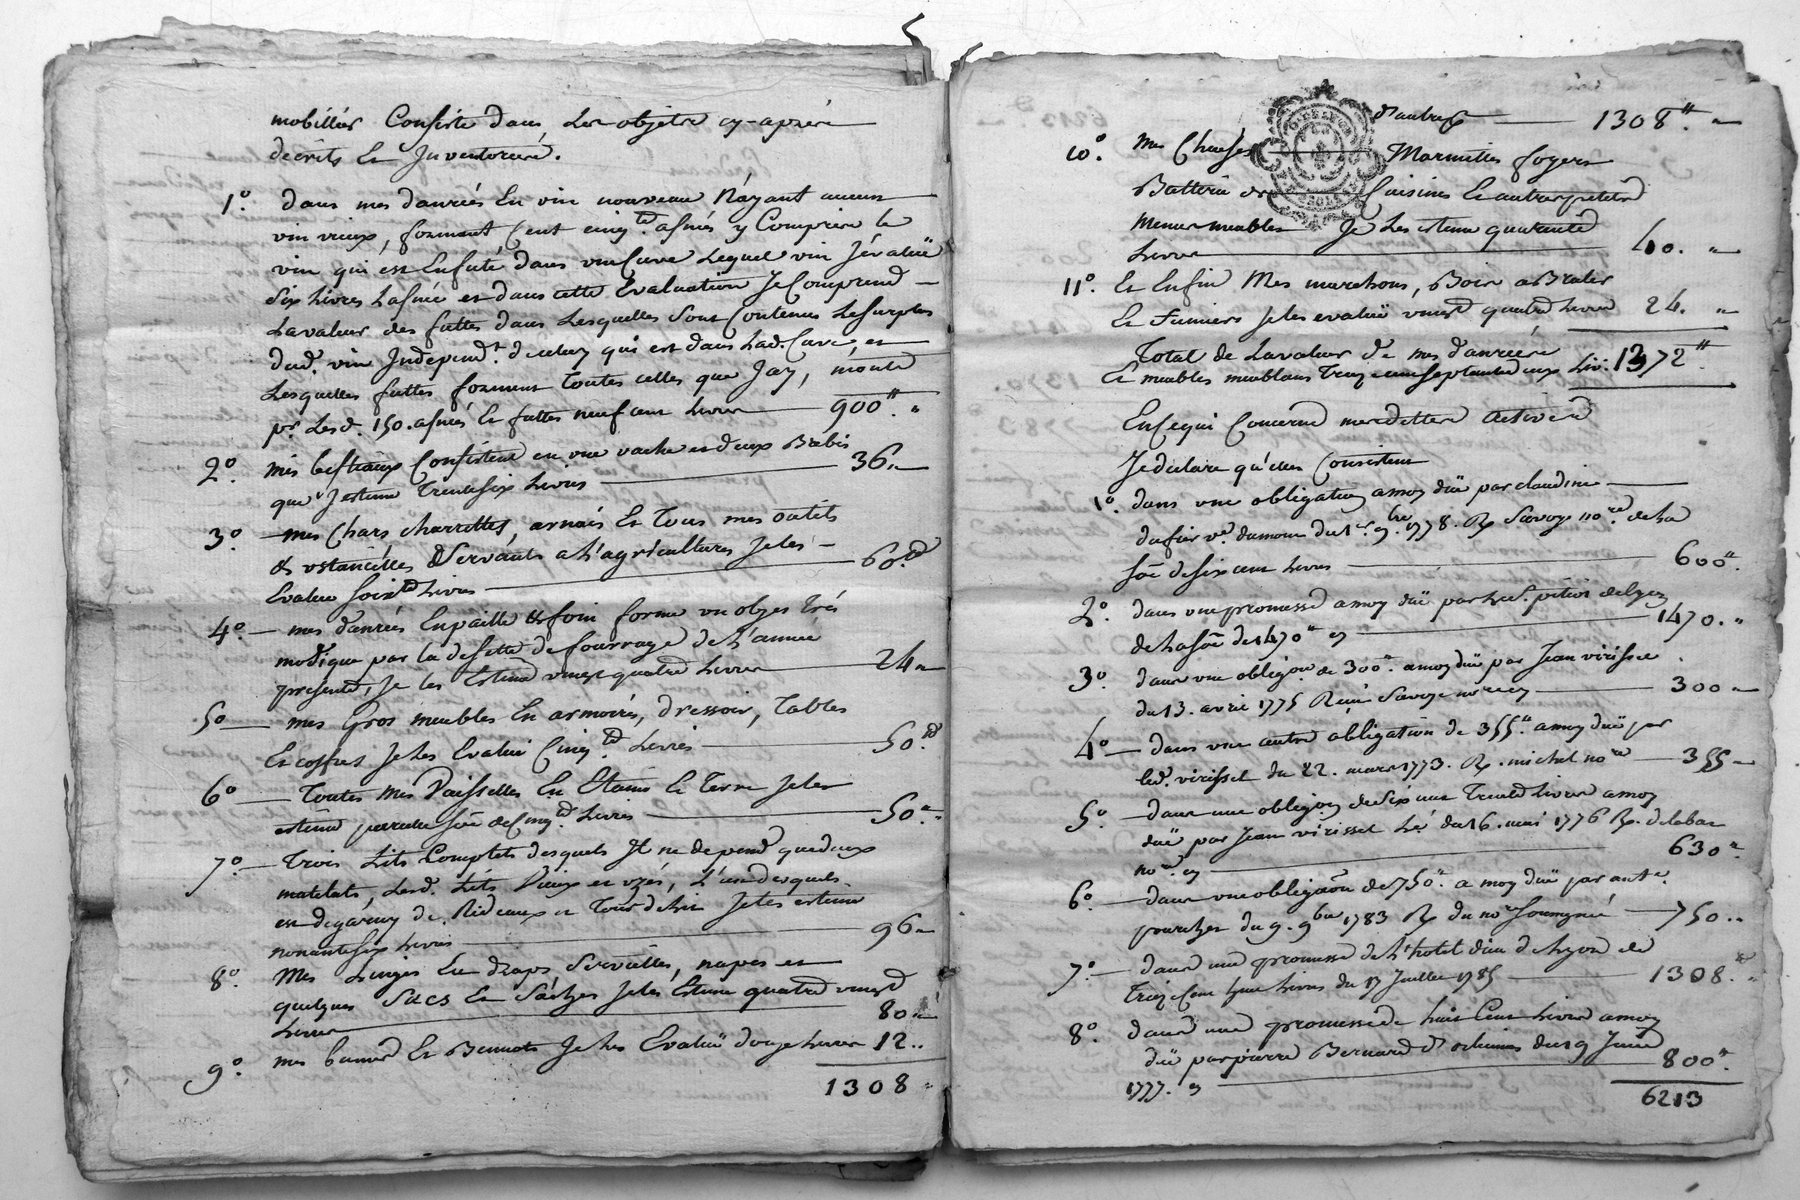 mobillier Consiste dans Les objets cy-apprès
decrits Et Inventoriés.
1° dans mes danrées En vin nouveau N'ayant aucun
vin vieux, forment Cent cinq.te asnées y Compris le
vin qui est Enfuté dans une Cuve Lequel vin J'évalue
Six Livres Lasnée et dans cette Evaluation Je Comprend
La valeur des futtes dans Lesquelles Sont Contenus Le Surplus
dud. vin Independ.t de celuy qui est dans Lad. Cuve, et
Lesquelles futtes forment toutes celles que Jay, monte
pr. Lesd. 150. asnées Et futtes neuf cent Livres 900"
2° mes bestiaux Consistent en une vache et deux Brebis
que J'estime Trente six Livres 36
3° mes Chars charrettes arnais Et Tous mes outils
& ustancilles Servants a L'agriculture Je les
Evalue soix.te Livres 60
4° mes danrées En paille & foin forme un objet très
modique par la desette de fourrage de L'année
présente, Je les Estime vingt quatre Livres 24
5° mes Gros meubles En armoires, dressoir, Tables
Et coffres Je Les Evalue Cinq.te Livres 50
6° Toutes Mes Vaisselles En Etaims Et Terre Je les
estime pareille so͞e de Cinq.te Livres 50
7° Trois Lits Complets desquels Il ne depend que deux
matelats, Lesd. Lits Vieux et uzés, L'un desquels
est degarny de Rideaux et Tour de Lit Je les estime
nonante six Livres 96
8° Mes Linges En draps, Serviettes, napes et
quelques Sacs Et Je les Estime quatre vingt
Livres 80
9° mes Et Bennots Je Les Evalue douze Livres 12
1308
d'autre part 1308"
10° Mes Marmittes foyers
Batterie de Cuisines Et autres petits
Menus meubles Je Les estime quarente
Livres 40.
11° Et Enfin Mes , Bois a Bruler
Et Fumiers Je les evalue vingt quatre Livres 24.
Total de La valeur de mes danrées
Et meubles meublans Treize cent septante deux Liv: 1372"
En Ce qui Concerne mes dettes Actives
Je declare qu'elles Consistent
1° dans une obligation a moy due par claudine
dufier v.e dumont du 1er 9.bre 1778. R. Savoye no.re de La
so͞e de six cent Livres 600"
2° dans une promesse a moy due par
de La so͞e de 1470" cy 1470.
3° dans une oblig.on de 300" a moy due par Jean virisset
du 13. avril 1775 Reçu Savoye no.re cy 300
4° dans une autre obligation de 355" a moy due par
led. virisset du 22. mars 1773. R. michel no.re 355
5° dans une obligõn de Six cent Trente Livres a moy
due par Jean virisset Le du 16. mai 1776 R. delabat
no.re cy 630"
6° dans une obligãon de 750" a moy due par ant.e
pourchet du 9. 9bre 1783 R. du no.re 750
7° dans une promesse de L'hotel dieu de Lyon de
Treize Cent huit Livres du 17 Juillet 1785 1308
8° dans une promesse de huit Cent Livres a moy
due par pierre Bernard du 19 Juin
1777. cy 800"
6213